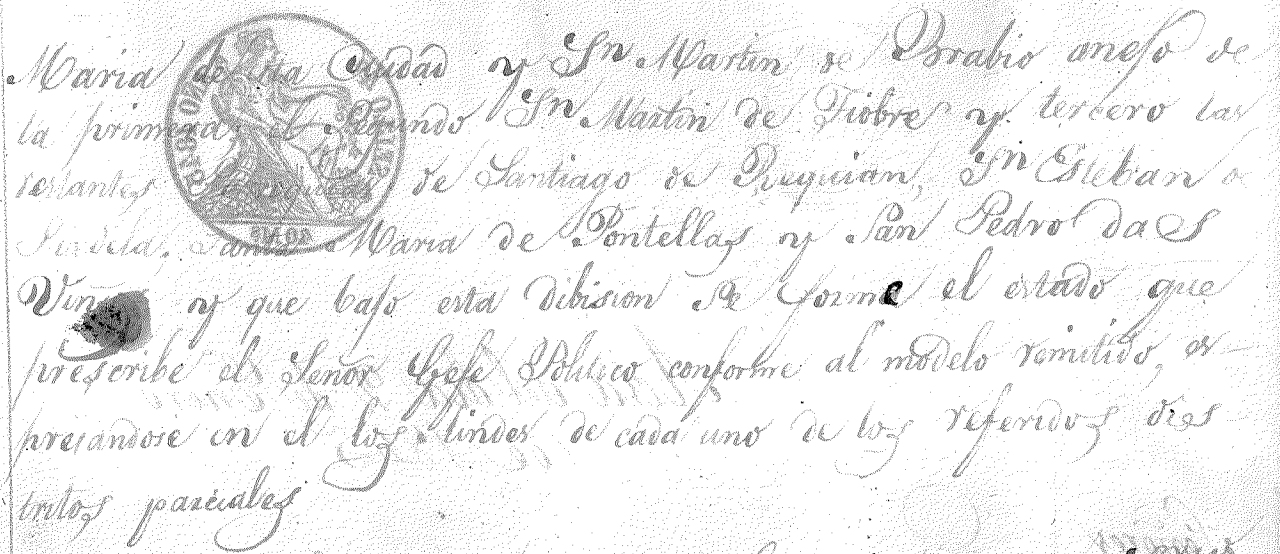 Maria de esta Ciudad y Sn Martin de Brabio anejo de
la primera; el segundo Sn Martin de Tiobre y tercero las
restantes de Santiago de Requian, Sn Esteban de
Santa Maria de Pontellas y San Pedro das
Viñas y que bajo esta dibision se forme el estado que
prescribe el Señor Gefe Politico conforme al modelo remitido, es
presandose en el los lindes de cada uno de los referidos dis
tritos parciales